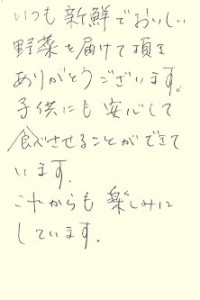 いつも新鮮でおいしい
野菜を届けて頂き
ありがとうございます。
子供にも安心して
食べさせることができて
います.
これからも楽しみに
しています.